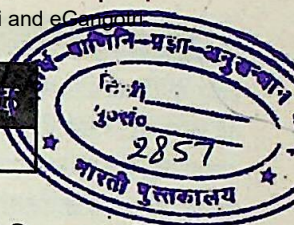 i and eCangotri
आर्ष-पाणिनि-प्रज्ञा-अनुसन्धान
ति०
पु०सं०
2857
भारती पुस्तकालय